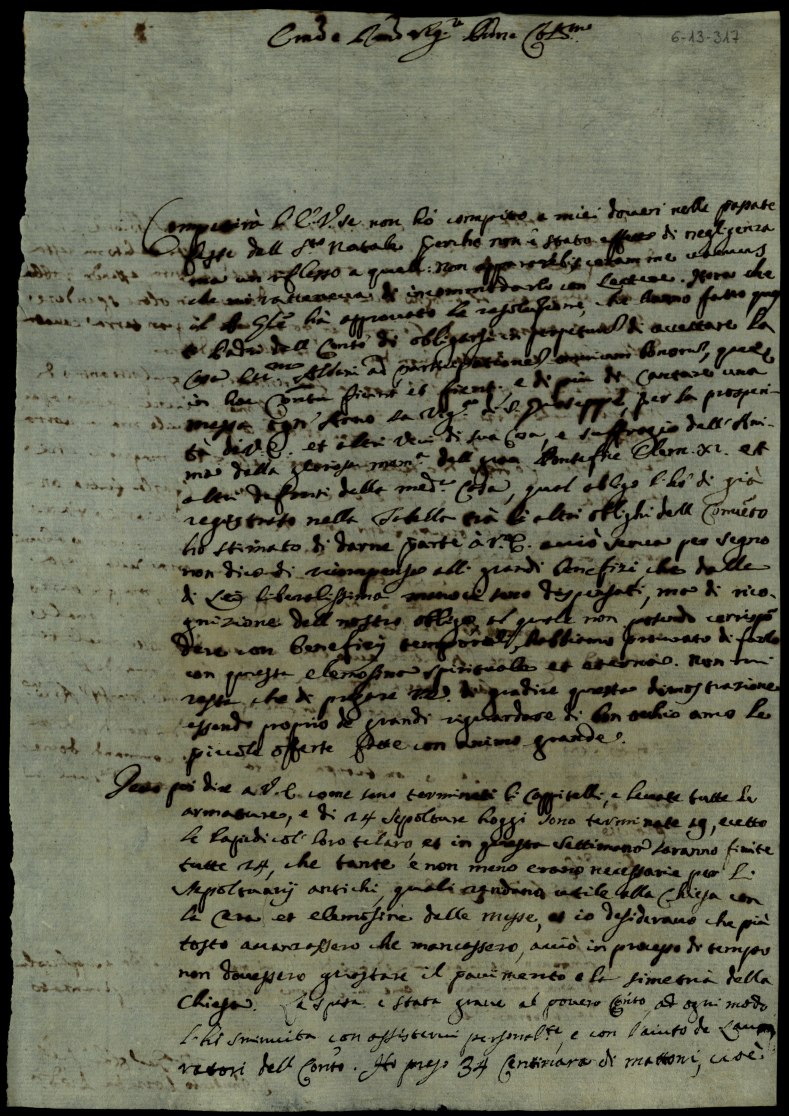 6-13-317
Compatirà V. E. se non hò compito a miei doveri nelle passate
feste del S.to Natale perche non è stato effetto di negligenza
ma un riflesso a quell:
che mi ratteneva di incommodarlo con lettere. Hora che
il hà approvato le resolutioni, che hanno fatto questi
Padri dell Conto di obligarsi in perpetuo di accettare la
Casa Albani ad participationem omnium bonorum, quae
in hoc fiunt et fient. e di più di cantare una
messa ogni Anno la Vig.a di S. Giuseppe, per la prosperi
tà di V. E. et altri vivi di sua Casa, e suffragio dell'Ani
ma della gloriosa mem.a dell gran Pontefice Clem. XI. et
altri defonti della med.a Casa, qual obligo l'hò di già
registrato nella Tabella trà li altri oblighi dell Convẽto
hò stimato di darne parte à V. E. acciò serva per segno
non dico di ricompensa alli grandi benefizi che dalle
di Lei liberalissima mano ci sono dispensati, ma di rico-
gnizione dell nostro obligo al quale non potendo corrispõ
dere con benefizi temporali, habbiamo procurato di farlo
con questa elemosina spirituale et eterna. Non mi
resta che di pregare V. E. di gradire questa dimostrazione
essendo proprio de grandi riguardare di bon ochio anco le
piccole offerte fatte con animo grande.
poi dire a V. E. come sono terminati li Cappitelli, e levate tutte le
armature, e di 24 sepolture hoggi sono terminate 19, ecetto
le lapidi col loro telaro et in questa settimana saranno finite
tutte 24, che tante e non meno erano necessarie per li
sepoltuarij antichi, quali rendono utile alla Chiesa con
la Cera et elemosine delle messe, et io desideravo che più
tosto avanzassero che mancassero, acciò in processo di tempo
non dovessero guastare il pavimento e la simetria della
Chiesa. La spesa è stata grave al povero Conto, ad ogni modo
l'hò sminuita con assistervi personal.te, e con l'aiuto de Lavo
ratori dell Conto. Hò preso 34 Centinara di mattoni, cioè